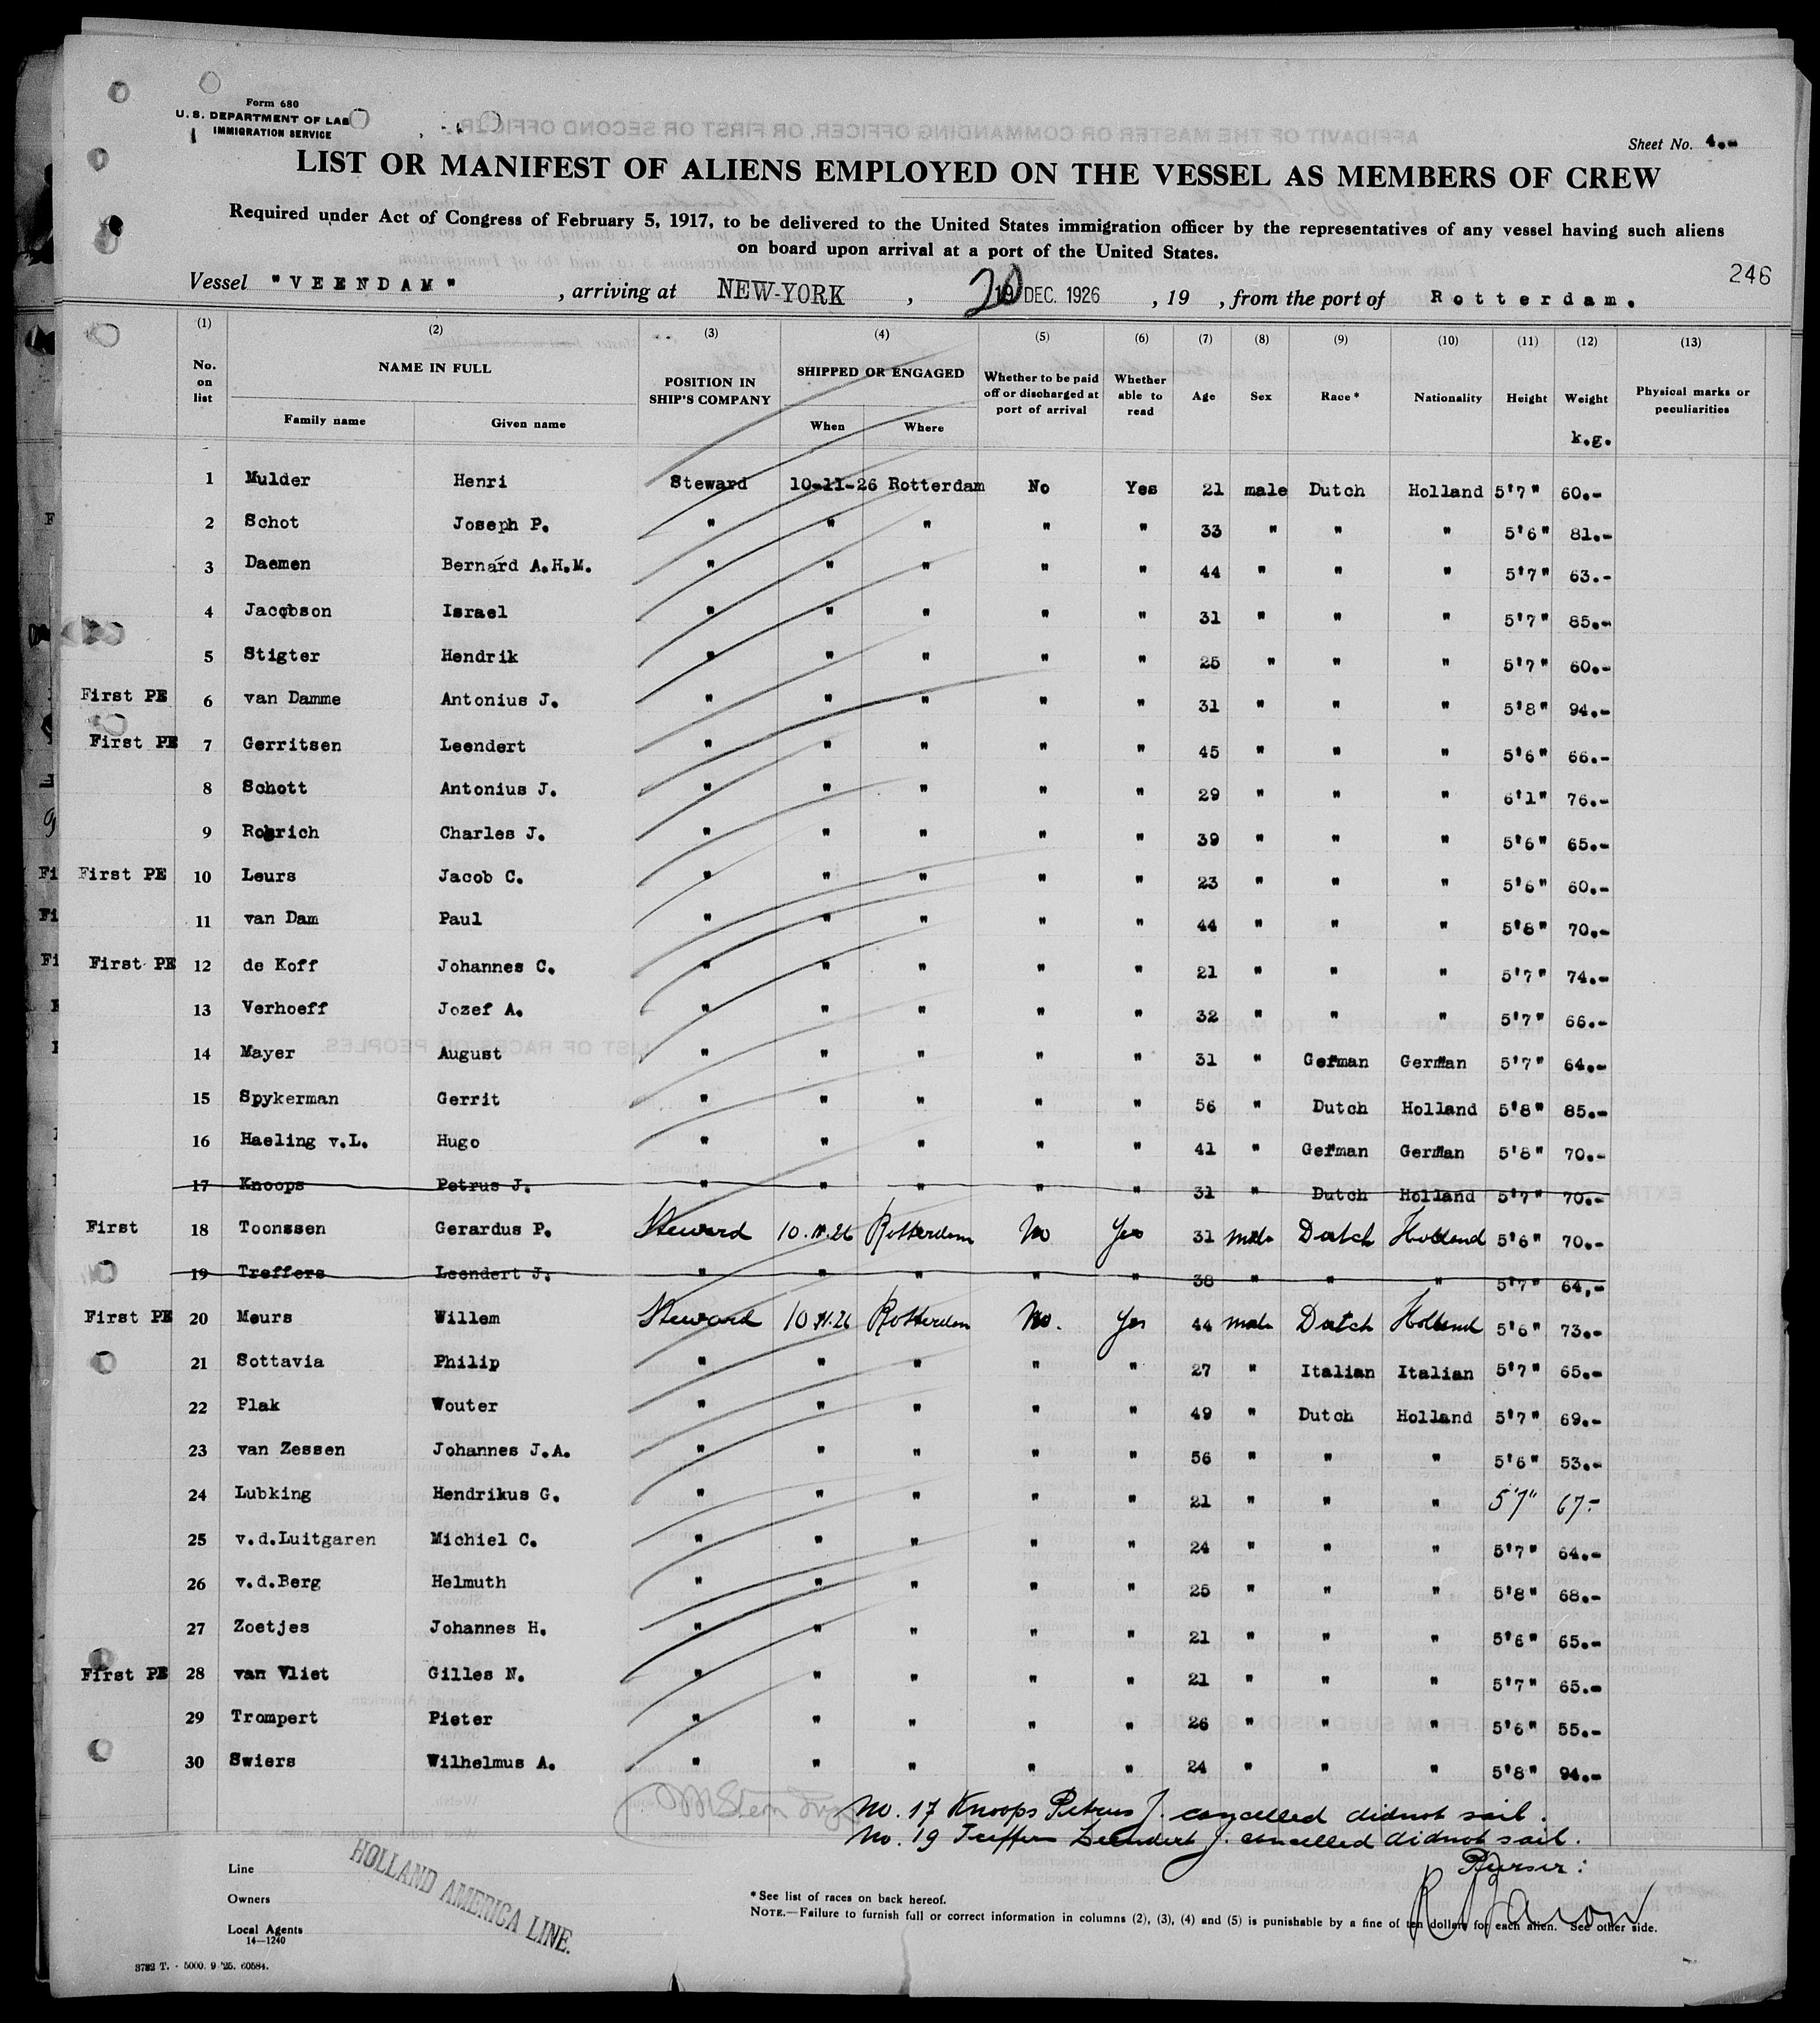 Form 680
U. S. DEPARTMENT OF LAB
IMMIGRATION SERVICE
Sheet No. 4.-
LIST OR MANIFEST OF ALIENS EMPLOYED ON THE VESSEL AS MEMBERS OF CREW
Required under Act of Congress of February 5, 1917, to be delivered to the United States immigration officer by the representatives of any vessel having such aliens
on board upon arrival at a port of the United States.
246
Vessel "VEENDAM" , arriving at NEW-YORK , 20 DEC. 1926 , 19 , from the port of Rotterdam.
(1) (2) (3) (4) (5) (6) (7) (8) (9) (10) (11) (12) (13)
No. on list NAME IN FULL Family name Given name POSITION IN SHIP'S COMPANY SHIPPED OR ENGAGED When Where Whether to be paid off or discharged at port of arrival Whether able to read Age Sex Race* Nationality Height Weight Physical marks or peculiarities
k.g.
1 Mulder Henri Steward 10-11-26 Rotterdam No Yes 21 male Dutch Holland 5'7" 60.-
2 Schot Joseph P. " " " " " 33 " " " 5'6" 81.-
3 Daemen Bernard A.H.M. " " " " " 44 " " " 5'7" 63.-
4 Jacobson Israel " " " " " 31 " " " 5'7" 85.-
5 Stigter Hendrik " " " " " 25 " " " 5'7" 60.-
First PE 6 van Damme Antonius J. " " " " " 31 " " " 5'8" 94.-
First PE 7 Gerritsen Leendert " " " " " 45 " " " 5'6" 66.-
8 Schott Antonius J. " " " " " 29 " " " 6'1" 76.-
9 Charles J. " " " " " 39 " " " 5'6" 65.-
First PE 10 Leurs Jacob C. " " " " " 23 " " " 5'6" 60.-
11 van Dam Paul " " " " " 44 " " " 5'8" 70.-
First PE 12 de Koff Johannes C. " " " " " 21 " " " 5'7" 74.-
13 Verhoeff Jozef A. " " " " " 32 " " " 5'7" 66.-
14 Mayer August " " " " " 31 " German German 5'7" 64.-
15 Spykerman Gerrit " " " " " 56 " Dutch Holland 5'8" 85.-
16 Haeling v.L. Hugo " " " " " 41 " German German 5'8" 70.-
17 Knoops Petrus J. " " " " " 31 " Dutch Holland 5'7" 70.-
First 18 Toonssen Gerardus P. Steward 10.11.26 Rotterdam No Yes 31 male Dutch Holland 5'6" 70.-
19 Treffers Leendert J. " " " " " 38 " " " 5'7" 64,-
First PE 20 Meurs Willem Steward 10.11.26 Rotterdam No. Yes 44 male Dutch Holland 5'6" 73.-
21 Sottavia Philip " " " " " 27 " Italian Italian 5'7" 65.-
22 Plak Wouter " " " " " 49 " Dutch Holland 5'7" 69.-
23 van Zessen Johannes J.A. " " " " " 56 " " " 5'6" 53.-
24 Lubking Hendrikus G. " " " " " 21 " " " 5'7" 67-
25 v.d.Luitgaren Michiel C. " " " " " 24 " " " 5'7" 64.-
26 v.d.Berg Helmuth " " " " " 25 " " " 5'8" 68.-
27 Zoetjes Johannes H. " " " " " 21 " " " 5'6" 65.-
First PE 28 van Vliet Gilles N. " " " " " 21 " " " 5'7" 65.-
29 Trompert Pieter " " " " " 26 " " " 5'6" 55.-
30 Swiers Wilhelmus A. " " " " " 24 " " " 5'8" 94.-
No. 17 Knoops Petrus J. cancelled didnot sail.
No. 19 Treffers Leendert J. cancelled didnot sail.
Purser:
Line
Owners
Local Agents
14—1240
HOLLAND AMERICA LINE.
*See list of races on back hereof.
NOTE.—Failure to furnish full or correct information in columns (2), (3), (4) and (5) is punishable by a fine of ten dollars for each alien. See other side.
3782 T. - 5000. 9 '25. 60584.